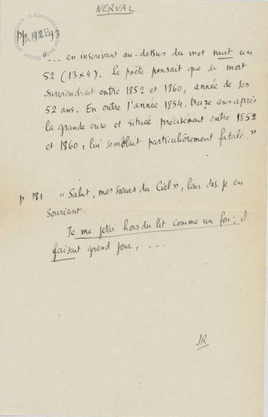 NERVAL
"... en inscrivant au-dessus du mot nuit un
52 (13x4). Le poète pensait que sa mort
surviendrait entre 1852 et 1860, année de ses
52 ans. En outre l'année 1854, treize ans après
la grande crise et située précisément entre 1852
et 1860, lui semblait particulièrement fatale."
p 181 "Salut, mes sœurs du Ciel", leur dis je en
souriant.
Je me jetai hors du lit comme un fou; il
faisait grand jour, ...
JR